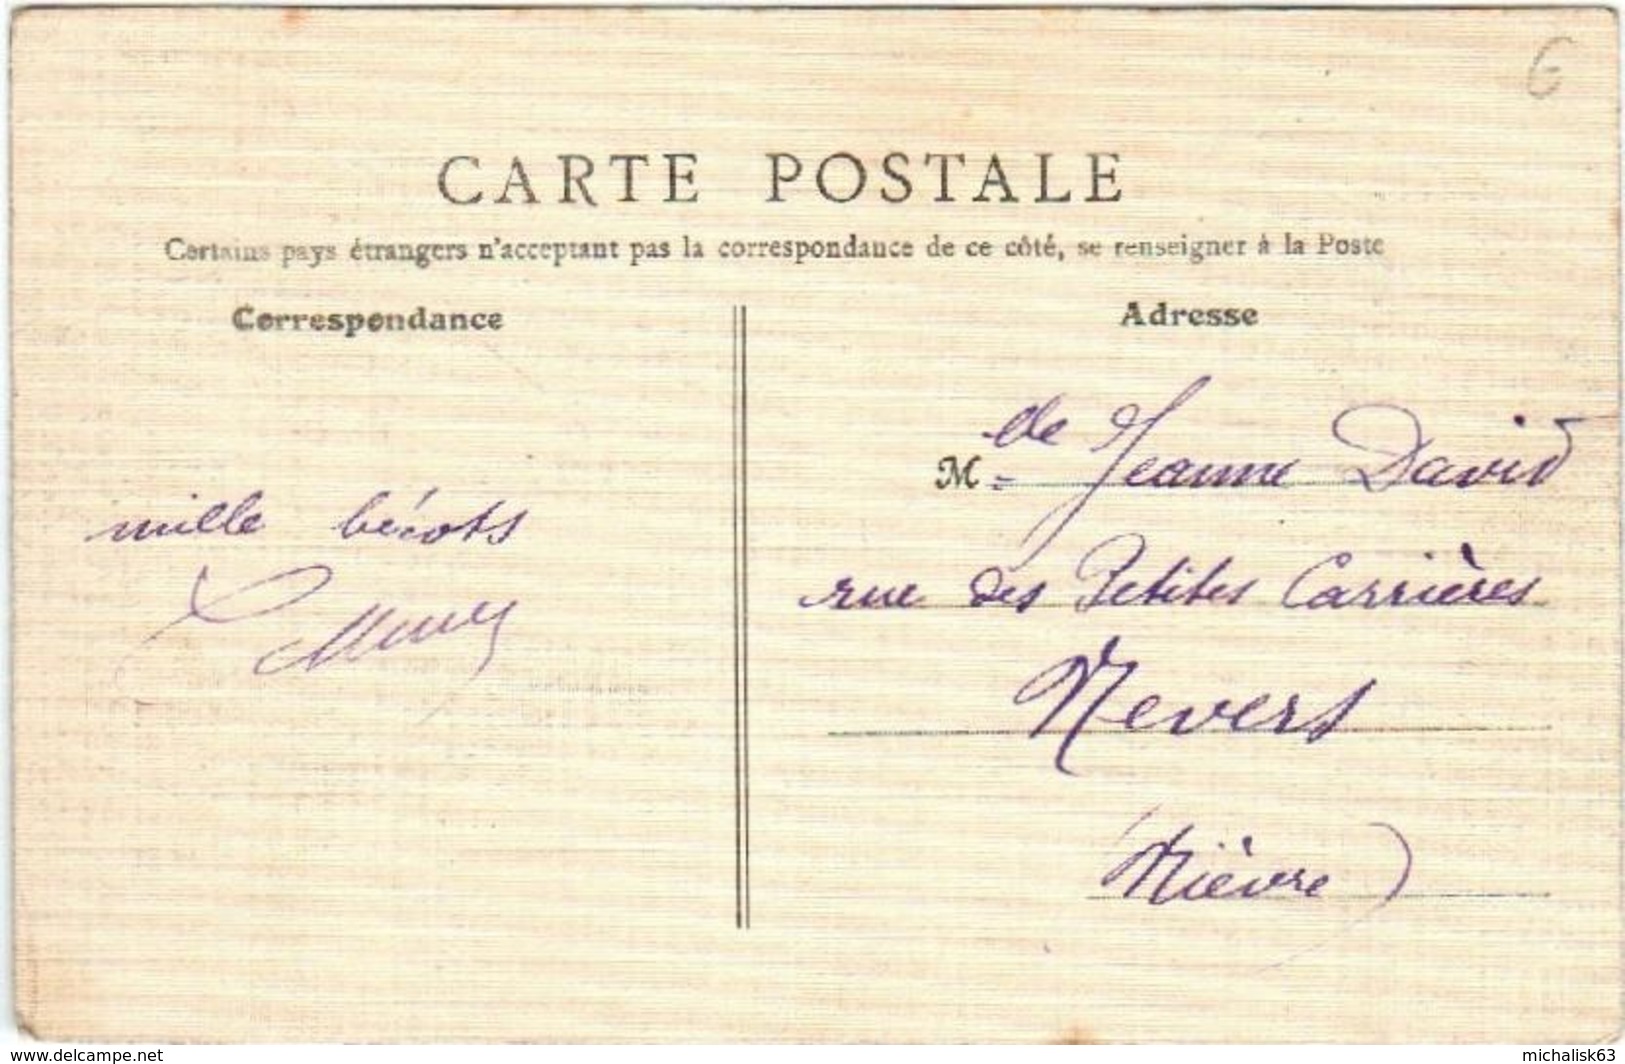 6
CARTE POSTALE
Certains pays étrangers n'acceptant pas la correspondance de ce côté, se renseigner à la Poste
Correspondance
mille bécots
Adresse
Mlle Jeanne David
rue des Petites Carrières
Nevers
(Nièvre)
www.delcampe.net
michalisk63